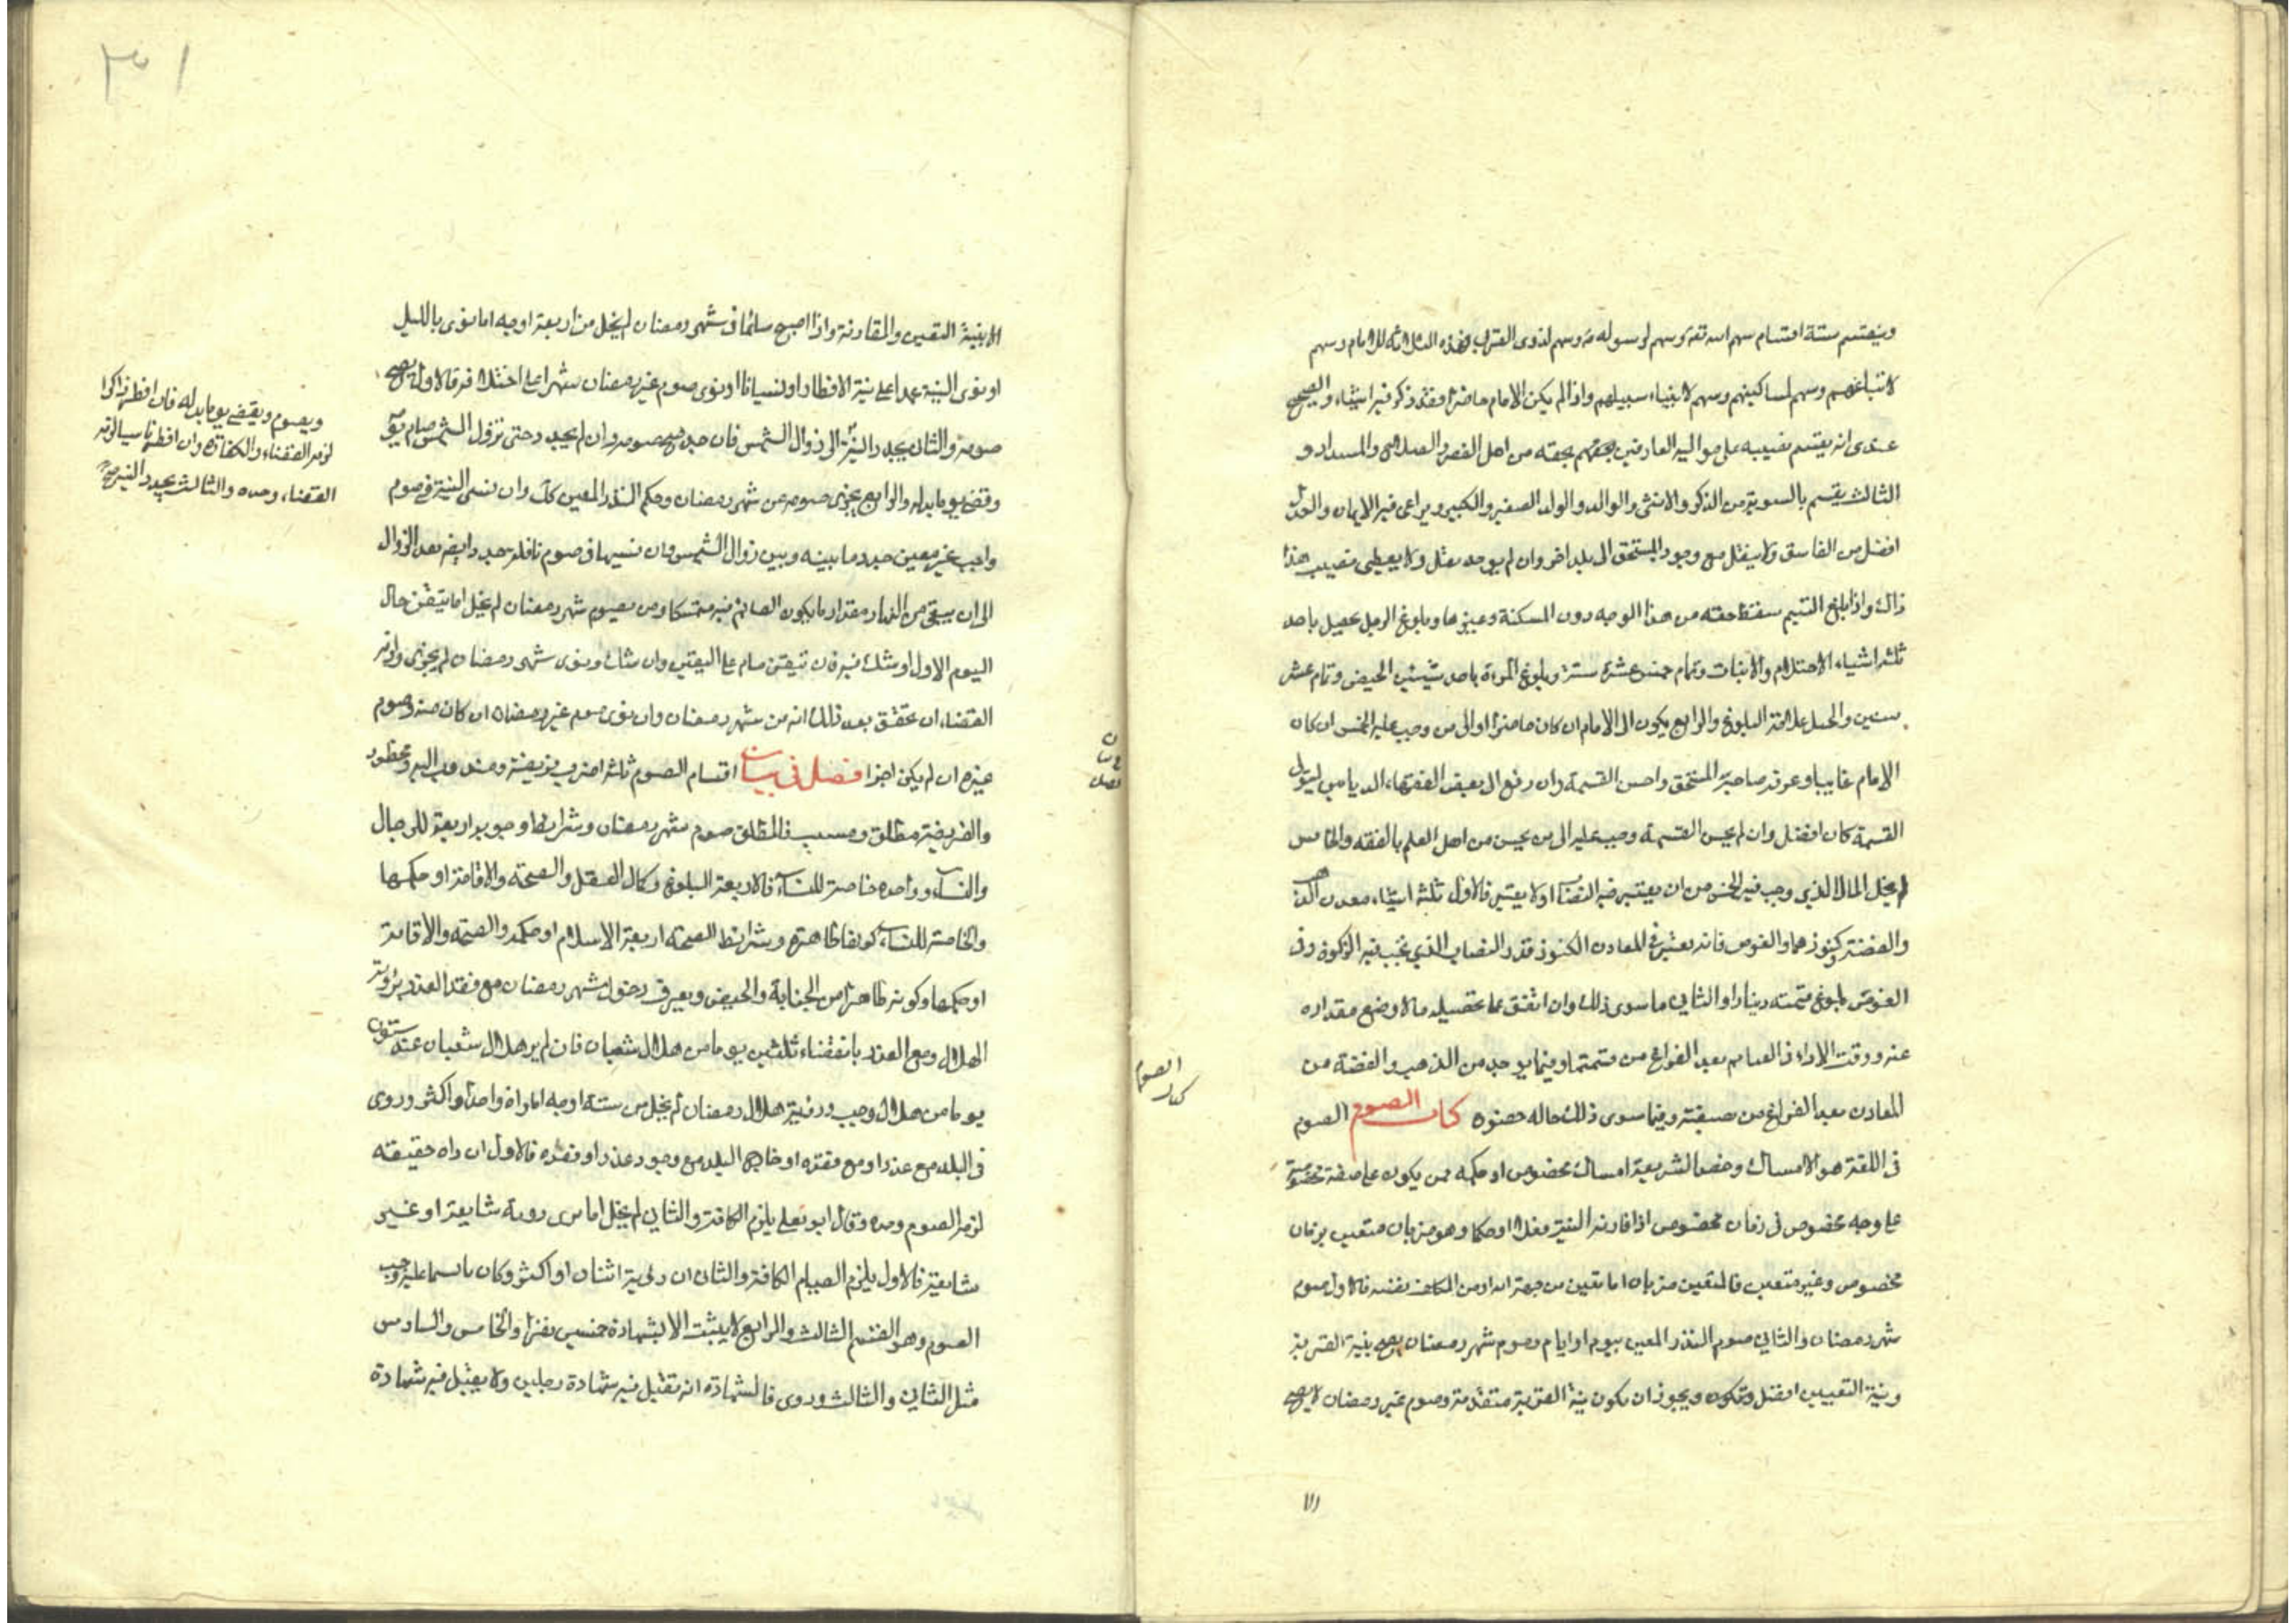 وينقسم ستة اقسام سهم لله تعه وسهم لرسوله ص وسهم لذوي القربى فهذه الثلاثة للامام وسهم
لايتامهم وسهم لمساكينهم وسهم لابناء سبيلهم واذا لم يكن الامام حاضرا فقد ذكر فيه اشياء والصحيح
عندي انه يقسم نصيبه على مواليه العارفين بحقهم بحقه من اهل الفقر والصلاح والسداد و
الثالث يقسم بالسوية من الذكر والانثى والوالد والولد الصغير والكبير ويراعى فيه الايمان والعدل
افضل من الفاسق ولا ينقل مع وجود المستحق الى بلد اخر وان لم يوجد نقل ولا يعطى نصيب هذا
ذاك واذا بلغ اليتيم سقط حقه من هذا الوجه دون المسكنة وغيرها وبلوغ الرجل يحصل باحد
ثلثه اشياء الاحتلام والانبات وتمام خمس عشرة سنة وبلوغ المراة باحد شيئين الحيض وتمام عشر
سنين والحبل علامة البلوغ والرابع يكون الى الامام ان كان حاضرا او الى من وجب عليه الخمس ان كان
الامام غايبا وعرف صاحبه المستحق واحسن القسمة وان دفع الى بعض الفقهاء الديانين ليتولى
القسمة كان افضل وان لم يحسن القسمة وجب عليه الى من يحسن من اهل العلم بالفقه والخامس
لم يخل المال الذي وجب فيه الخمس من ان يعتبر فيه النصاب او لا يعتبر فالاول ثلثه اشياء معدن الذهب
والفضة وكنوزهما والغوص فانه يعتبر في المعادن الكنوز قدر النصاب الذي تجب فيه الزكوة وفي
الغوص بلوغ قيمته دينارا والثاني ما سوى ذلك وان انفق على تحصيله مالا وضع مقداره
عنه ووقت الاداء في الغنايم بعد الفراغ من قسمتها وفيما يوجد من الذهب والفضة من
المعادن بعد الفراغ من صفيته وفيما سوى ذلك حاله حضوره كتاب الصوم الصوم
في اللغة هو الامساك وخص الشريعة امساك مخصوص او حكمه ممن يكون على صفة مخصوصة
على وجه مخصوص في زمان مخصوص اذا قارنه النية فعلا او حكما وهو ضربان متعين بزمان
مخصوص وغير متعين فالمتعين ضربان اما تعين من جهة الله او من المكلف نفسه فالاول صوم
شهر رمضان والثاني صوم النذر المعين بيوم او ايام وصوم شهر رمضان يصح بنية القربة
ونية التعيين افضل وتكون ويجوز ان يكون نية القربة متقدمة وصوم غير رمضان لا يصح
كتاب الصوم
الا بنية التعيين والمقارنة واذا اصبح صائما في شهر رمضان لم يخل من اربعة اوجه اما نوى بالليل
او نوى النية عمدا على نية الافطار او نسيانا او نوى صوم غير رمضان شهرا على اختلاف فالاول يصح
صومه والثاني يجدد النية الى زوال الشمس فان جدد صح صومه وان لم يجدد حتى تزول الشمس صام يومه
وقضى يوما بدله والرابع يجزي صومه عن شهر رمضان وحكم النذر المعين كك وان نسي النية في صوم
واجب غير معين جدد ما بينه وبين زوال الشمس وان نسيها في صوم نافلة جدد ايضا بعد الزوال
الى ان يبقى من النهار مقدار ما يكون الصائم فيه ممسكا ومن يصوم شهر رمضان لم يخل اما يتيقن حال
اليوم الاول او شك فيه فان تيقن صام على اليقين وان شك ونوى شهر رمضان لم يجزي ولزم
القضاء ان تحقق بعد ذلك انه من شهر رمضان وان نوى صوم غير رمضان ان كان منه وصوم
غيره ان لم يكن اجزا فصل في بيان اقسام الصوم ثلثه اضرب فريضة ومندوب اليه ومحظور
والفريضة مطلق ومسبب فالمطلق صوم شهر رمضان وشرايط وجوبه اربعة للرجال
والنساء وواحده خاصة للنساء فالاربعة البلوغ وكمال العقل والصحة والاقامة او حكمها
والخاصة للنساء كونها طاهرة وشرايط الصحة اربعة الاسلام او حكمه والصحة والاقامة
او حكمها وكونه طاهرا من الجنابة والحيض ويعرف دخول شهر رمضان مع فقد العذر برؤية
الهلال ومع العذر بانقضاء ثلثين يوما من هلال شعبان فان لم ير هلال شعبان عد ستون
يوما من هلال رجب ورؤية هلال رمضان لم يخل من ستة اوجه اما راه واحد او اكثر وروى
في البلد مع عذر او مع فقده او خارج البلد مع وجود عذر او فقده فالاول ان راه حقيقته
لزمه الصوم وحده وقال ابو يعلى يلزم الكافة والثاني لم يخل اما يرى روية شايعة او غير
شايعة فالاول يلزم الصيام الكافة والثاني ان رؤية اثنان او اكثر وكان بالسماء علة وجب
الصوم وهو القسم الثالث والرابع لا يثبت الا بشهادة خمسين نفرا والخامس والسادس
مثل الثاني والثالث وروى فالشهادة انه تقبل فيه شهادة رجلين ولا يقبل فيه شهادة
ويصوم ويقضي يوما بدله فان افطر ذاكرا
لزمه القضاء والكفارة وان افطر ناسيا لزمه
القضاء وحده والثالث يجدد النية
٣١